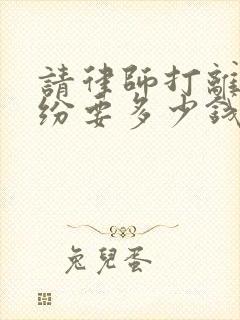 請律師打離
紛要多少錢
兔兒蛋